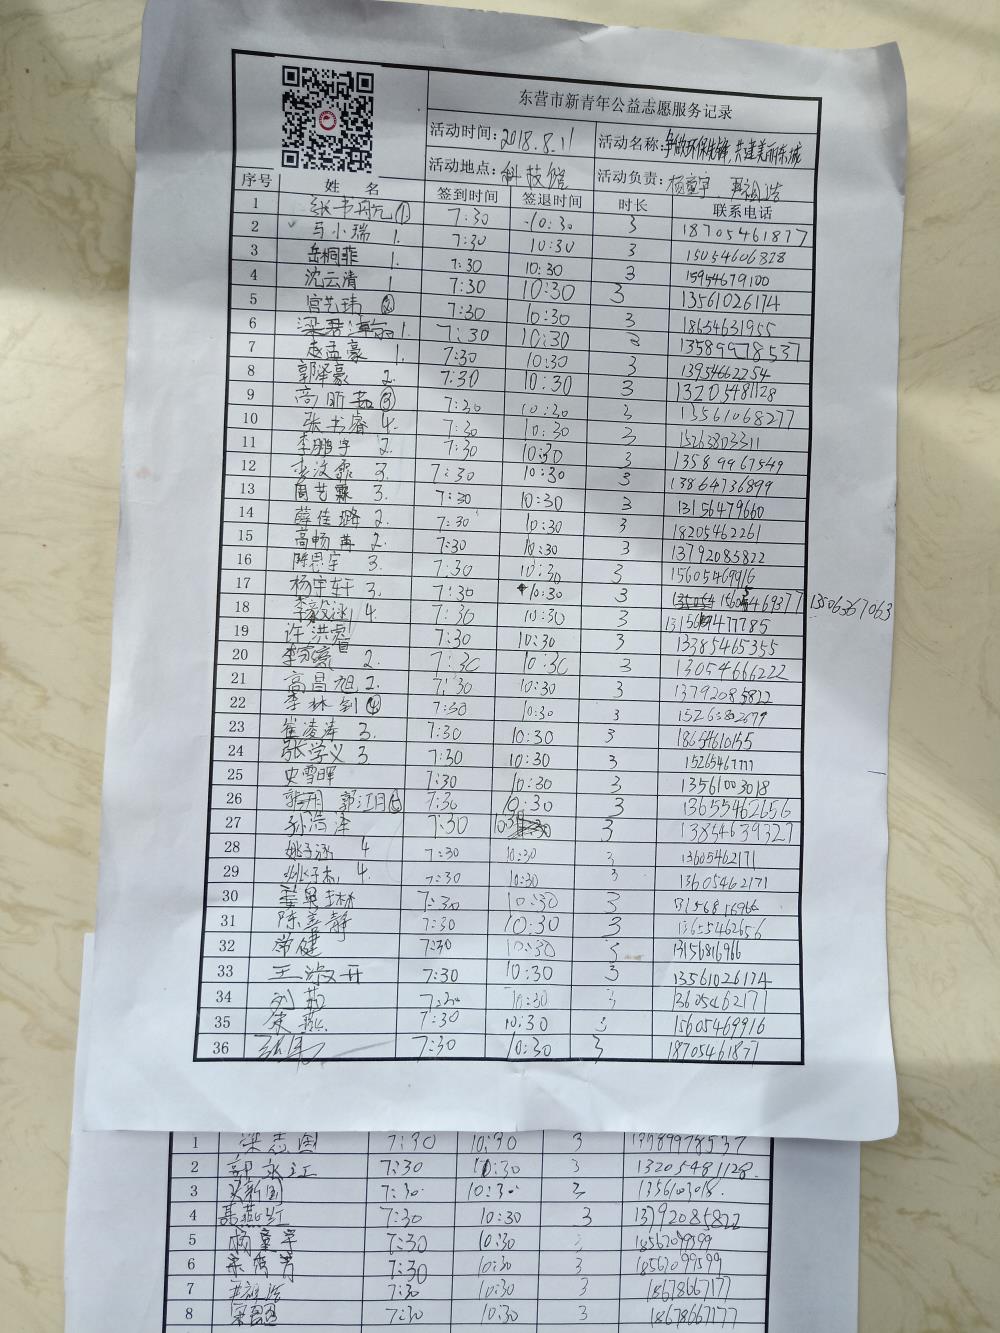 东营市新青年公益志愿服务记录
活动时间: 2018.8.11 活动名称: 争做环保先锋,共建美丽东城
活动地点: 科技馆 活动负责: 杨童宇
序号 姓名 签到时间 签退时间 时长 联系电话
1 张书丹 ① 7:30 10:30 3 18705461877
2 马小瑞 1. 7:30 10:30 3 15054606828
3 岳桐菲 1. 7:30 10:30 3 15954679100
4 沈云清 1 7:30 10:30 3 13561026174
5 宫艺玮 ② 7:30 10:30 3 18654631955
6 梁君 1. 7:30 10:30 3 13589978537
7 赵孟豪 1. 7:30 10:30 3 13954662254
8 郭泽豪 2. 7:30 10:30 3 13205481128
9 高昕茹 ③ 7:30 10:30 3 13561068277
10 张书睿 4. 7:30 10:30 3 15263803311
11 李鹏宇 2. 7:30 10:30 3 13589967549
12 3. 7:30 10:30 3 13864736899
13 周艺霖 3. 7:30 10:30 3 13156479660
14 薛佳璐 2. 7:30 10:30 3 18205462261
15 高畅 2. 7:30 10:30 3 13792085822
16 陈思宇 3. 7:30 10:30 3 15605469916
17 杨宇轩 3. 7:30 10:30 3 13506367063
18 李毅 4. 7:30 10:30 3
19 许洪睿 7:30 10:30 3 13385465355
20 2. 7:30 10:30 3 13054666222
21 高昌旭 2. 7:30 10:30 3 13792085822
22 李林钊 ④ 7:30 10:30 3
23 崔凌涛 3. 7:30 10:30 3 18654610155
24 张学义 3 7:30 10:30 3
25 史雪晖 7:30 10:30 3 13561003018
26 郭江月 ⑤ 7:30 10:30 3 13655462656
27 孙浩泽 7:30 10:30 3 13854639327
28 姚子涵 4 7:30 10:30 3 13605462171
29 姚子杰 4. 7:30 10:30 3 13605462171
30 7:30 10:30 3
31 陈善静 7:30 10:30 3 13655462656
32 常健 7:30 10:30 3 13156816966
33 王淑开 7:30 10:30 3 13561026174
34 刘茹 7:30 10:30 3 13605462171
35 燕 7:30 10:30 3 15605469916
36 7:30 10:30 3 18705461877
1 梁志国 7:30 10:30 3 13589978537
2 郭永江 7:30 10:30 3 13205481128.
3 史新国 7:30 10:30 3
4 高燕红 7:30 10:30 3 13792085822
5 杨童宇 7:30 10:30 3
6 7:30 10:30 3
7 7:30 10:30 3 18678667177
8 7:30 10:30 3 18678667177